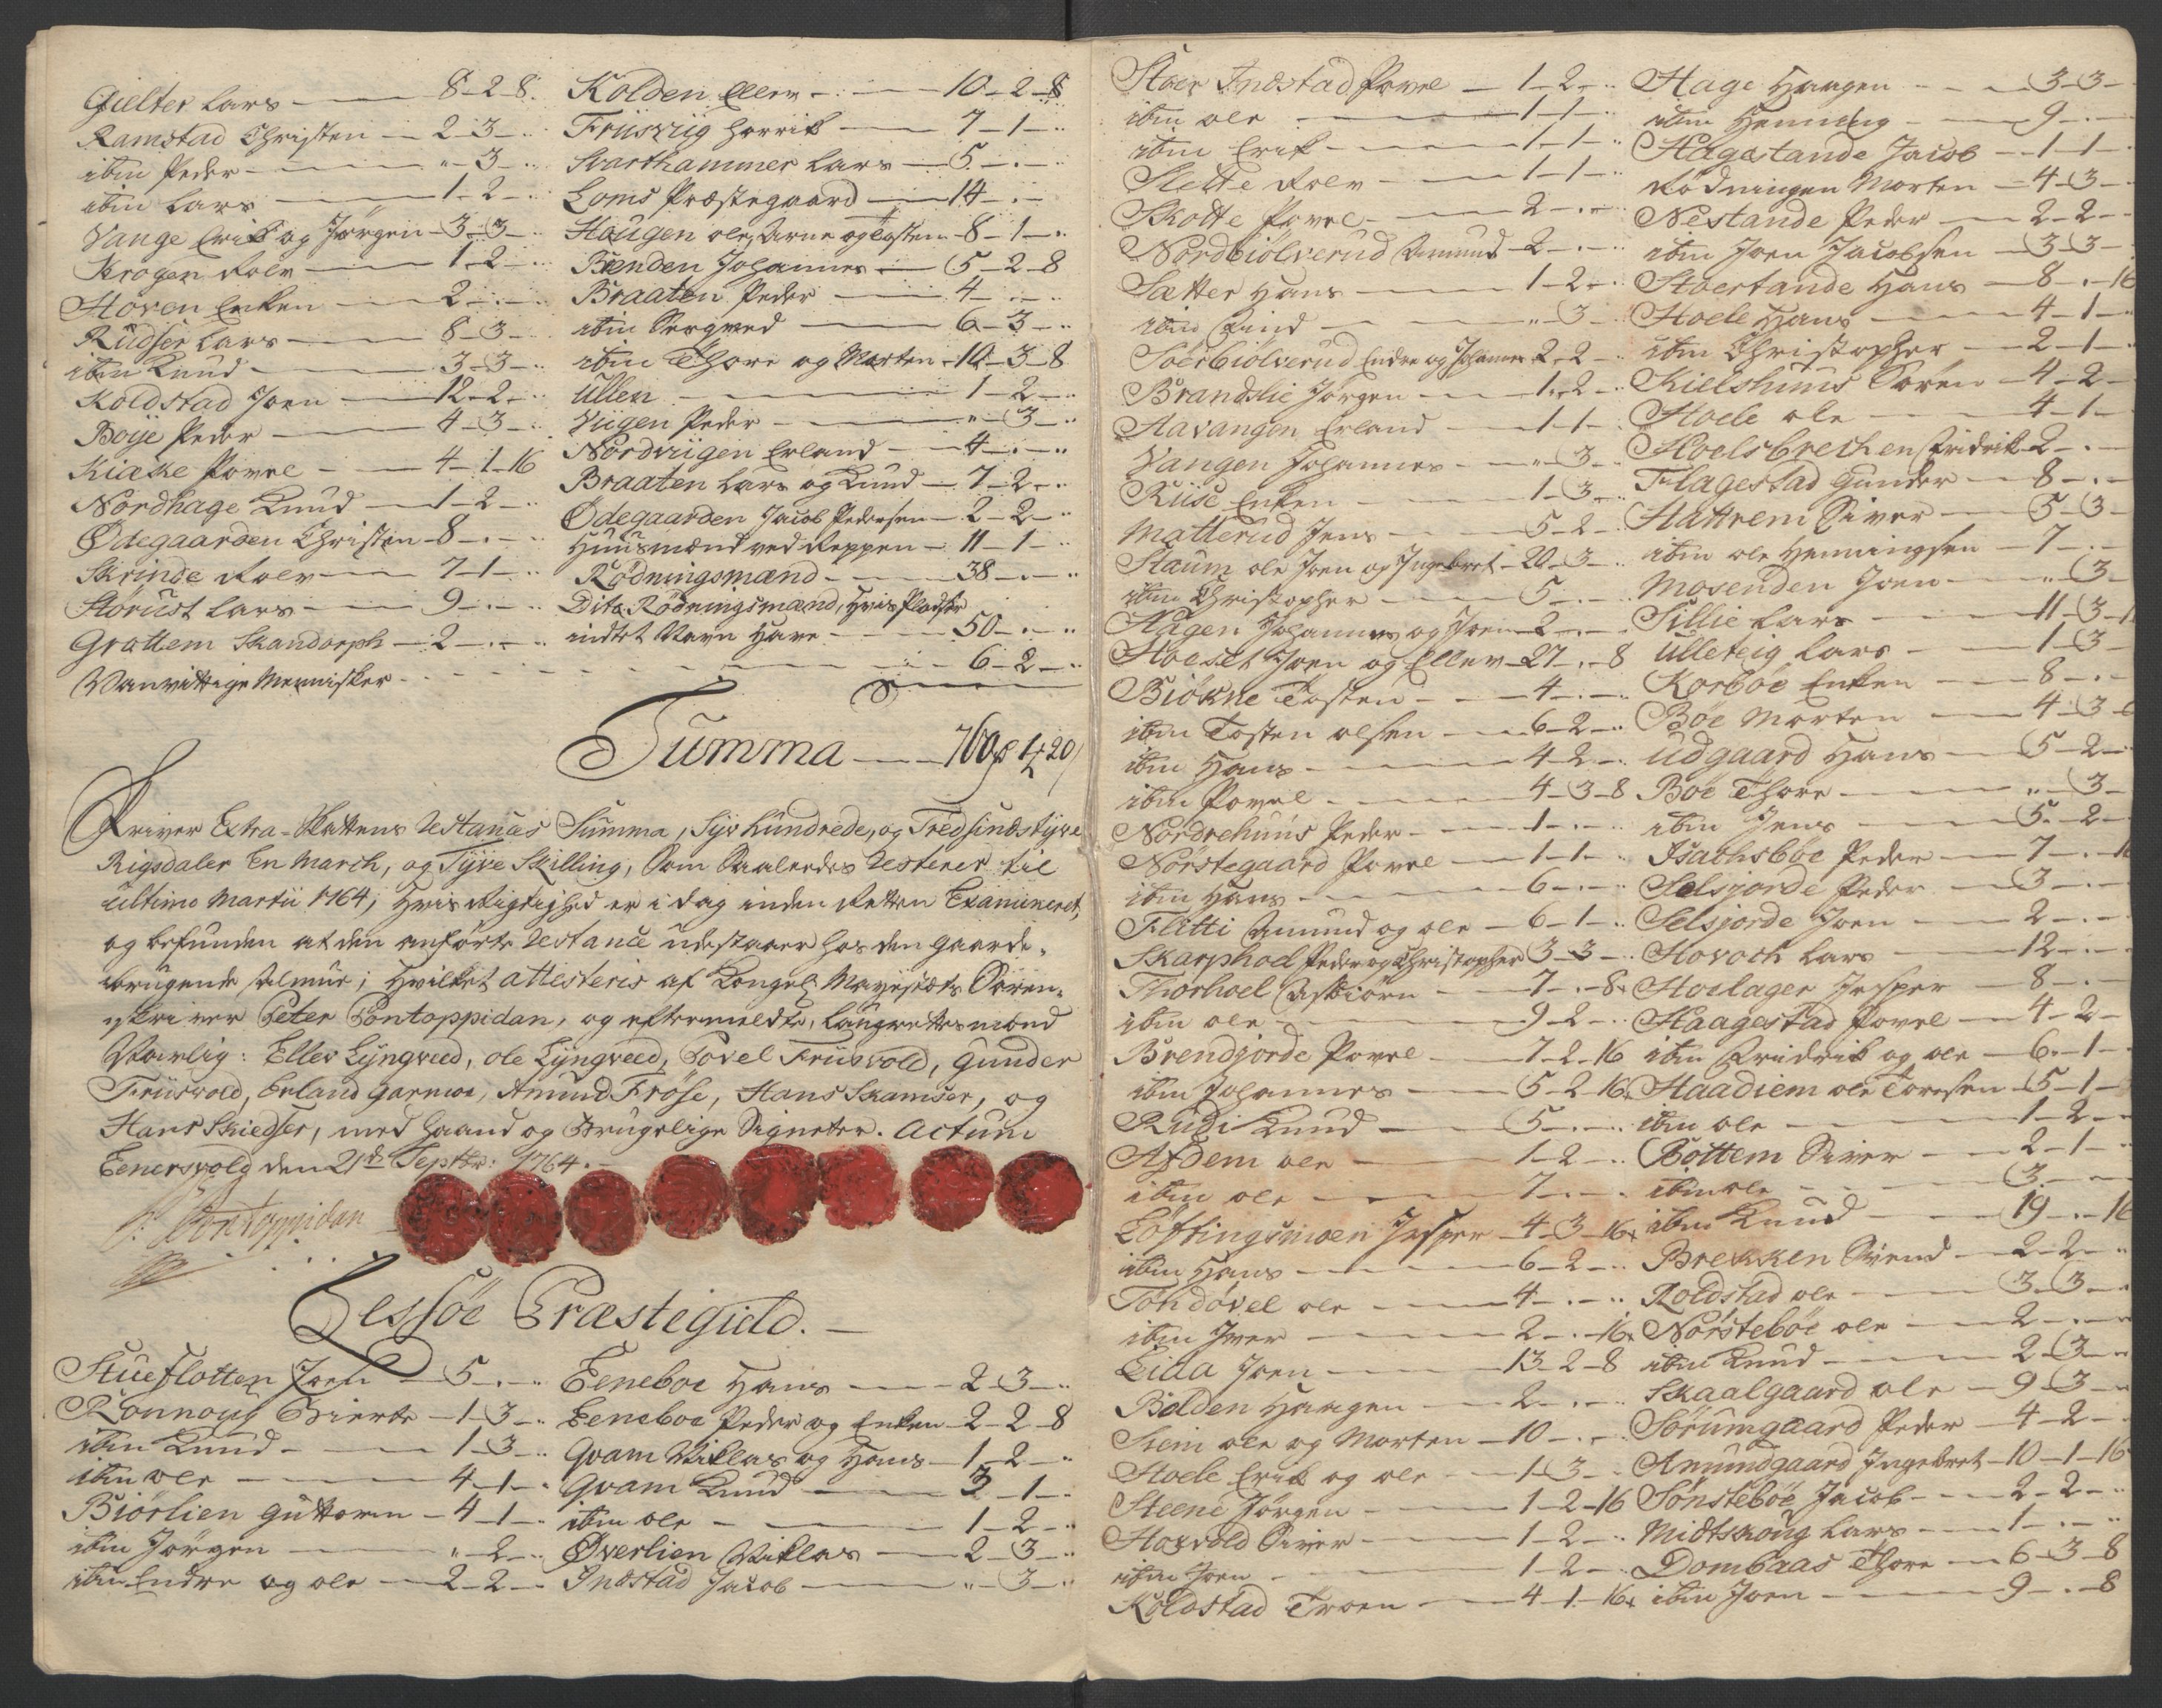 Gielter Lars — 8-2-8.
Ramstad Christen — 2-3-..
ibm Peder — „-3-..
ibm Lars — 1-2-..
Vange Erik og Jörgen — 3-3-..
Krogen Rolv — 1-2-..
Hoven Enken — 2-.-..
Rudser Lars — 8-3-..
ibm Knud — 3-3-..
Koldstad Joen — 12-2-..
Boye Peder — 4-3-..
Kiæke Povel — 4-1-16
Nordhage Knud — 1-2-..
Ødegaarden Christen — 8-.-..
Skrinde Rolv — 7-1-..
Störust Lars — 9-.-..
Grottem Skandorph — 2-.-..
Kolden Ellev — 10-2-8
Friisviig Henrik — 7-1-..
Svarthammer Lars — 5-.-..
Loms Præstegaard — 14-.-
Haugen Ole, Arne og Tosten — 8-1-..
Bænden Johannes — 5-2-8
Braaten Peder — 4-.-..
ibm Sergved — 6-3-..
ibm Thore og Morten — 10-3-8
Ullen — 1-2-..
Viigen Peder — „-3-..
Nordviigen Erland — 4-.-..
Braaten Lars og Knud — 7-2-..
Ødegaarden Jacob Pedersen — 2-2-..
Huusmænd ved Reppen — 11-1-..
Rødningsmænd — 38-.-..
Dito Rödningsmænd, Hvis Pladser
indtet Navn Have — 50-.-..
Vanvittige Mennisker — 6-2-..
Summa — 760 1 20
Skriver Extra-Skattens Restances Summa, Syv Hundrede, og Tredsindstyve
Rigsdaler En March, og Tyve Skilling, Som Saaledes Resterer til
Ultimo Martii 1764, Hvis Rigtighed er i dag inden Retten Examineret,
og befunden at den anförte Restance udestaaer hos den gaard-
brugende Almue; Hvilket attesteris af Kongel: Mayestets Soren-
skriver Peter Pontoppidan, og eftermeldte, Laugrettesmænd
Navnlig: Ellev Lyngved, Ole Lyngved, Povel Friisvold, Gunder
Friisvold, Erland Garmoe, Amund Fröse, Hans Skamser, og
Hans Skiedser, med Haand og Brugelige Signeter. Actum
Eenersvold den 21de Septbr: 1764.
P. Pontoppidan
Lessöe Præstegield.
Stueflotten Joen — 5-.-..
Rönnoug Bierte — 1-3-..
ibm Knud — 1-3-..
ibm Ole — 4-1-.
Biörlien Guttorm — 4-1-..
ibm Jörgen — „-2-..
ibm Endre og Ole — 2-2-..
Eeneboe Hans — 2-3-..
Eeneboe Peder og Enken — 2-2-8
Qvam Niklas og Hans — 1-2-..
Qvam Knud — 3-1-..
ibm Ole — 1-2-..
Øverlien Niklas — 2-3-..
Indstad Jacob — „-3-..
Stoer Indstad Povel — 1-2-..
ibm Ole — 1-1-..
ibm Erik — 1-1-..
Slette Rolv — 1-1-..
Skotte Povel — 2-.-..
Nordbiölverud Amund — 2-.-..
Sætter Hans — 1-2-..
ibm Eind — „-3-..
Soerbiölverud Endre og Johannes 2-2-..
Brandslie Jörgen — 1-2-..
Aavangen Erland — 1-1-..
Vangen Johannes — „-3-..
Riise Enken — 1-3-..
Matterud Jens — 5-2-..
Staum Ole Joen og Ingebret — 20-3-..
ibm Christopher — 5-.-..
Hagen Johannes og Joen — 2-.-..
Hoeset Joen og Ellev — 27-.-8
Biökne Tosten — 4-.-..
ibm Tosten Olsen — 6-2-..
ibm Hans — 4-2-..
ibm Povel — 4-3-8
Nordrehuus Peder — 1-.-..
Nörstegaard Povel — 1-1-..
ibm Hans — 6-.-..
Flitti Amund og Ole — 6-1-..
Skarphol Peder og Christopher 3-3-..
Thorhoel Asbiörn — 7-.-8
ibm Ole — 9-2-..
Brendjorde Povel — 7-2-16
ibm Johannes — 5-2-16
Rudi Knud — 5-.-..
Afdem Ole — 1-2-..
ibm Ole — 7-.-..
Löftingsmoen Jesper — 4-3-16
ibm Hans — 6-2-..
Töndövel Ole — 4-.-..
ibm Iver — 2-.-16
Lida Joen — 13-2-8
Bolden Haagen — 2-.-..
Stein Ole og Morten — 10-.-..
Hoele Erik og Ole — 1-3-..
Steene Jörgen — 1-2-16
Hosvold Siver — 1-2-..
ibm Joen — 1-2-..
Koldstad Troen — 4-1-16
Hage Haagen — 3-3-
ibm Henning — 9-.-
Hagestande Jacob — 1-1-
Rödningen Morten — 4-3-
Nestande Peder — 2-2-
ibm Joen Jacobsen — 3-3-
Stoertande Hans — 8-.-16
Hoele Hans — 4-1-
ibm Christopher — 2-1-
Kielshuus Sören — 4-2-
Hoele Ole — 4-1-
Hoelsbrechen Fridrik 2-.-
Flagestad Gunder — 8-.-
Hattrem Siver — 5-3-
ibm Ole Henningsen — 7-.-
Mosenden Joen — „-3-
Lillie Lars — 11-3-
Ulleteig Lars — 1-3-
Korboe Enken — 8-.-
Böe Morten — 4-3-
Udgaard Hans — 5-2-
Boe Thore — „-3-
ibm Jens — 5-2-
Isachsböe Peder — 7-.-
Selsjorde Peder — 3-.-
Selsjorde Joen — 2-.-
Hovoch Lars — 12-.-
Hoelager Jesper — 8-.-
Haagestad Povel — 4-2-
ibm Fridrik og Ole — 6-1-
Haadiem Ole Toresen — 5-1-
ibm Ole — 1-2-
Bottem Siver — 2-1-
ibm Ole — 3-.-
ibm Knud — 19-.-16
Brekken Svend — 2-2-
Koldstad Ole — 3-3-
Nörstebőe Ole — 2-.-
ibm Knud — 2-3-
Skaalgaard Ole — 9-3-
Sörumgaard Peder — 4-2-
Amundgaard Ingebret — 10-1-16
Sönsteböe Jacob — 2-2-
Midtskoug Lars — 1-.-
Dombaas Thore — 6-3-8
ibm Joen — 9-.-8